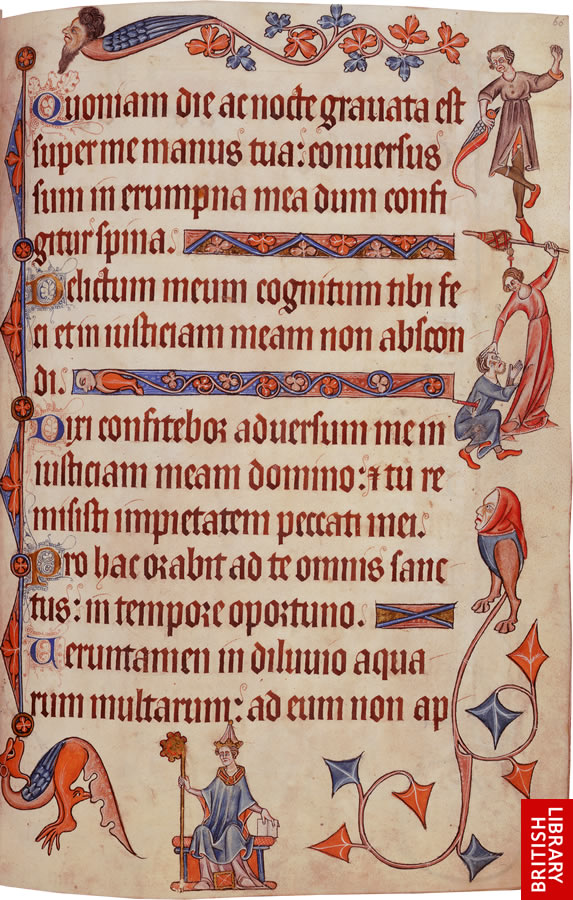 60
Quoniam die ac nocte grauata est
super me manus tua: conuersus
sum in erumpna mea dum confi
gitur spina.
Delictum meum cognitum tibi fe
ci et in iusticiam meam non abscon
di.
Dixi confitebor aduersum me in
iusticiam meam domino: ⁊ tu re
misisti impietatem peccati mei.
Pro hac orabit ad te omnis sanc
tus: in tempore oportuno.
Ueruntamen in diluuio aqua
rum multarum: ad eum non ap
BRITISH
LIBRARY